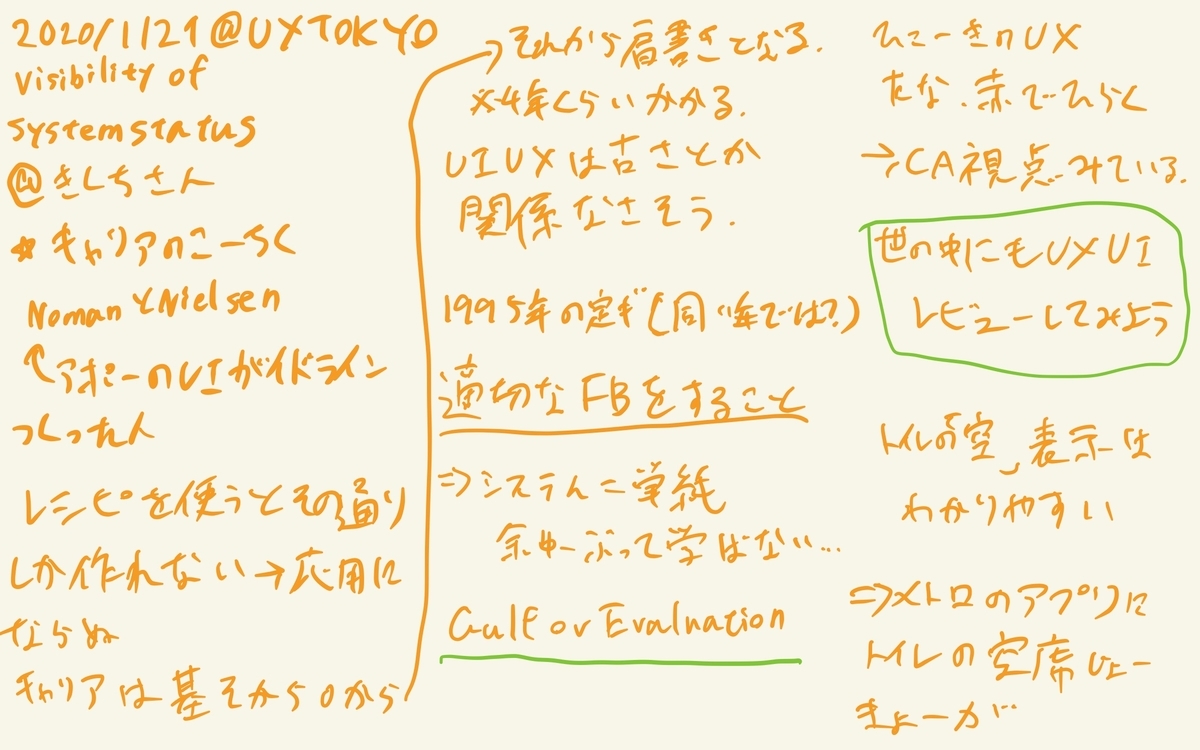 2020/1/21@UXTOKYO
Visibility of
systemstatus
@きしちさん
☆キャリアのこーちく
NomanとNielsen
↑アポーのUIがイドライン
つくった人
レシピを使うとその通り
しか作れない→応用に
ならぬ
キャリアは基そから0から
→それから肩書きとなる.
※4年くらいかかる.
UIUXは古さとか
関係なさそう.
1995年の定ぎ(同い年では?)
適切なFBをすること
⇒システム=単純
余中ぶって学ばない…
Gulf or Evaluation
ひこーきのUX
たな.赤でひらく
→CA視点.みている.
世の中にもUXUI
レビューしてみよう
トイレの「空」表示は
わかりやすい
⇒メトロのアプリに
トイレの空席じょー
きょーが